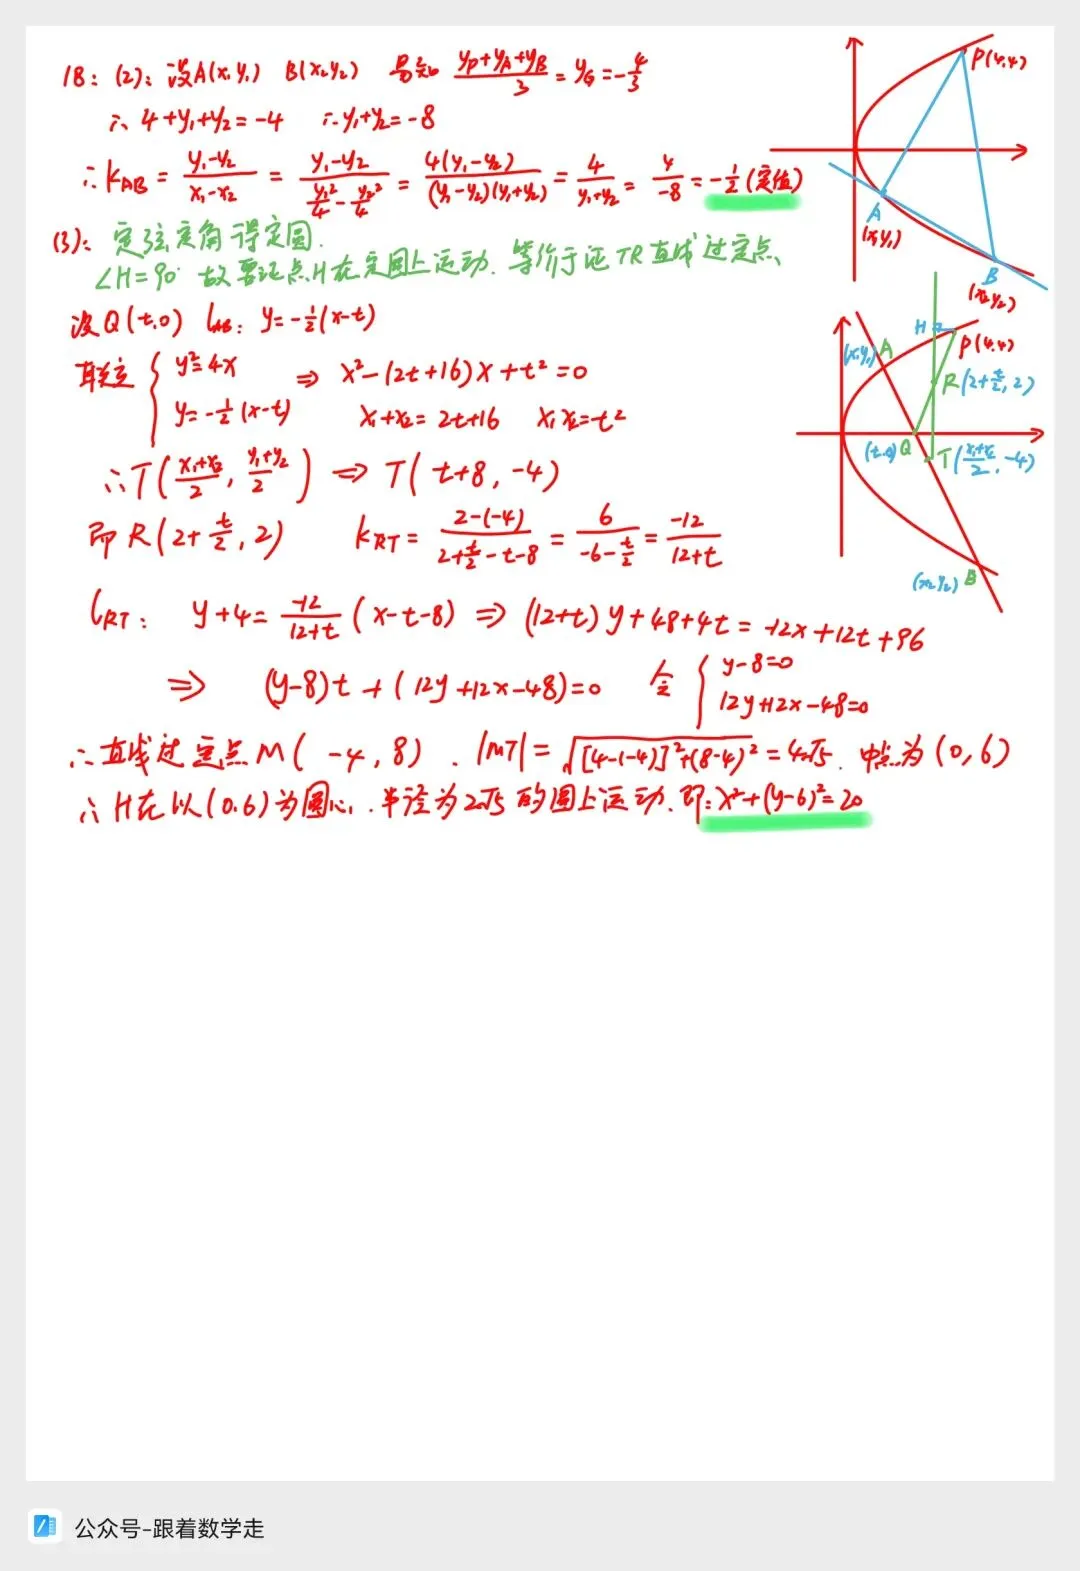 18: (2): 设A(x₁y₁) B(x₂y₂) 易知 (yP+yA+yB)/3 = yG = -4/3
∴ 4+y₁+y₂=-4 ∴y₁+y₂=-8
∴kAB = (y₁-y₂)/(x₁-x₂) = (y₁-y₂)/(y₁²/4-y₂²/4) = 4(y₁-y₂)/((y₁-y₂)(y₁+y₂)) = 4/(y₁+y₂) = 4/-8 = -1/2 (定值)
(3): 定弦定角得定圆.
∠H=90° 故要证点H在定圆上运动. 等价于证TR直线过定点、
设Q(t,0) lAB: y=-1/2(x-t)
联立 { y²=4x
y=-1/2(x-t)
⇒ x²-(2t+16)x+t²=0
x₁+x₂=2t+16 x₁x₂=t²
∴T((x₁+x₂)/2, (y₁+y₂)/2) ⇒ T(t+8, -4)
即R(2+t/2, 2) kRT = (2-(-4))/(2+t/2-t-8) = 6/(-6-t/2) = -12/(12+t)
lRT: y+4= -12/(12+t) (x-t-8) ⇒ (12+t)y+48+4t=-12x+12t+96
⇒ (y-8)t+(12y+12x-48)=0 令 { y-8=0
12y+12x-48=0
∴直线过定点M(-4,8). |MT|=√([4-(-4)]²+(8-4)²)=4√5. 中点为(0,6)
∴H在以(0.6)为圆心.半径为2√5的圆上运动.即:x²+(y-6)²=20
P(4,4)
A
(x₁y₁)
B
(x₂y₂)
H
P(4,4)
(x₁y₁) A
R(2+t/2, 2)
(t.0) Q
T((x₁+x₂)/2, -4)
(x₂y₂) B
公众号-跟着数学走